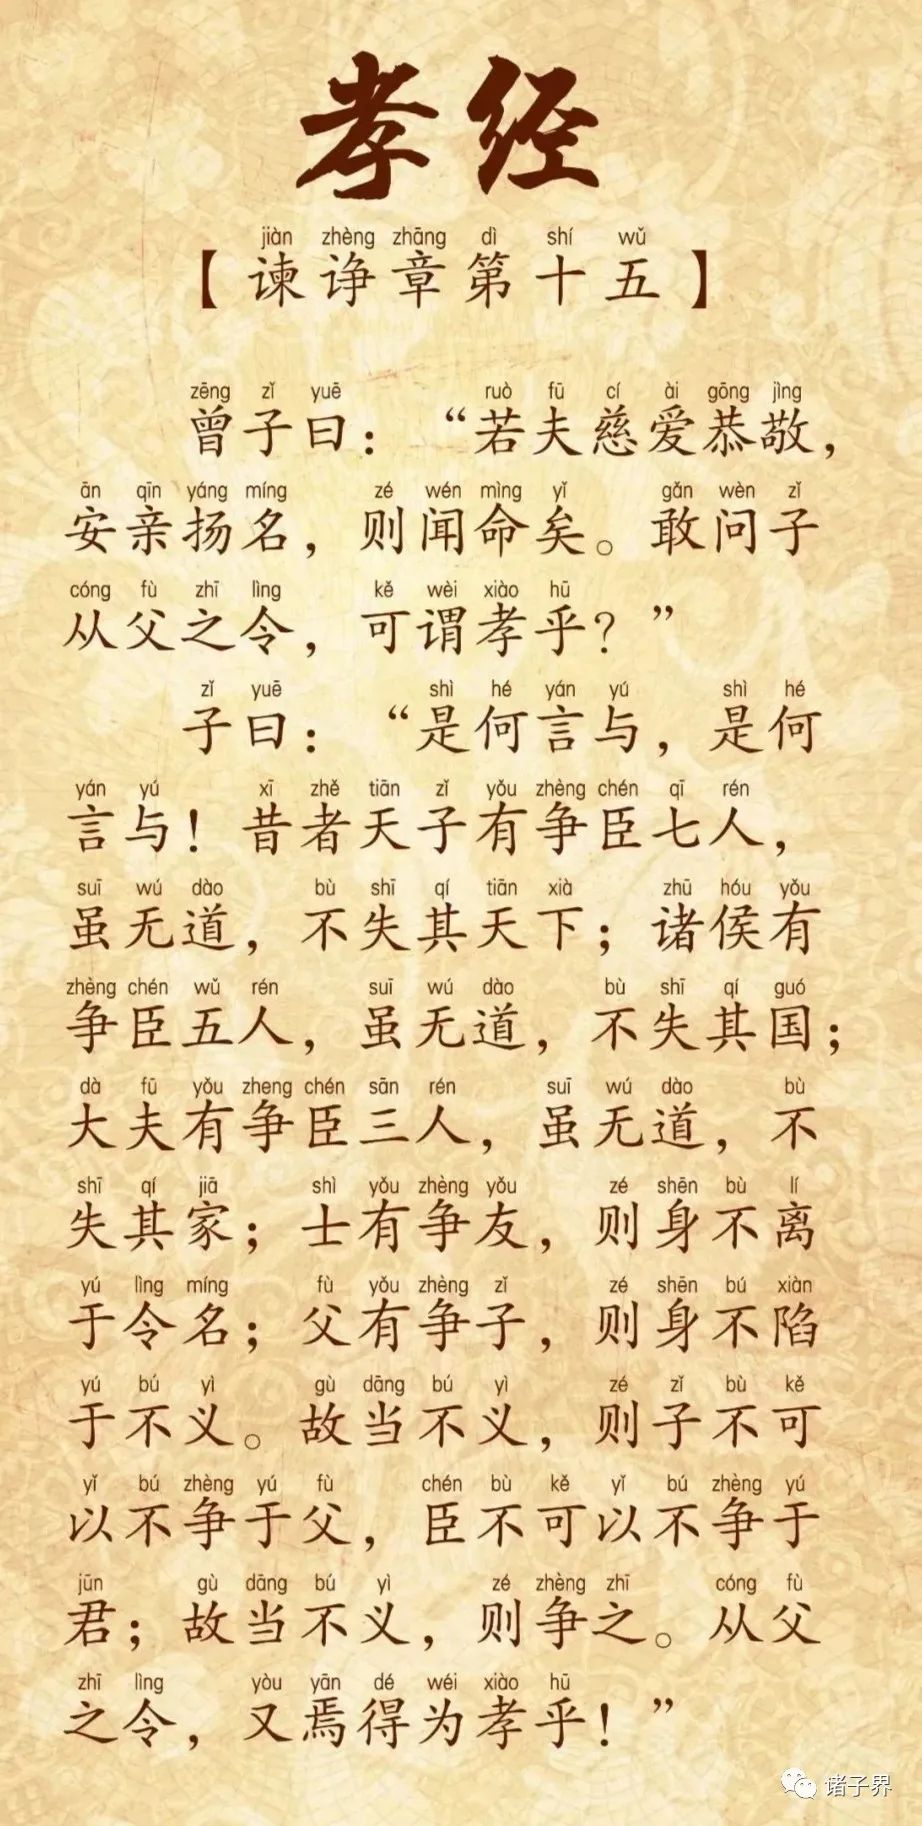 孝经
jiàn zhèng zhāng dì shí wǔ
【谏诤章第十五】
zēng zǐ yuē ruò fū cí ài gōng jìng
曾子曰：“若夫慈爱恭敬，
ān qīn yáng míng zé wén mìng yǐ gǎn wèn zǐ
安亲扬名，则闻命矣。敢问子
cóng fù zhī lìng kě wèi xiào hū
从父之令，可谓孝乎？”
zǐ yuē shì hé yán yú shì hé
子曰：“是何言与，是何
yán yú xī zhě tiān zǐ yǒu zhèng chén qī rén
言与！昔者天子有争臣七人，
suī wú dào bù shī qí tiān xià zhū hóu yǒu
虽无道，不失其天下；诸侯有
zhèng chén wǔ rén suī wú dào bù shī qí guó
争臣五人，虽无道，不失其国；
dà fū yǒu zheng chén sān rén suī wú dào bù
大夫有争臣三人，虽无道，不
shī qí jiā shì yǒu zhèng yǒu zé shēn bù lí
失其家；士有争友，则身不离
yú lìng míng fù yǒu zhèng zǐ zé shēn bú xiàn
于令名；父有争子，则身不陷
yú bú yì gù dāng bú yì zé zǐ bù kě
于不义。故当不义，则子不可
yǐ bú zhèng yú fù chén bù kě yǐ bú zhèng yú
以不争于父，臣不可以不争于
jūn gù dāng bú yì zé zhèng zhī cóng fù
君；故当不义，则争之。从父
zhī lìng yòu yān dé wéi xiào hū
之令，又焉得为孝乎！”
诸子界